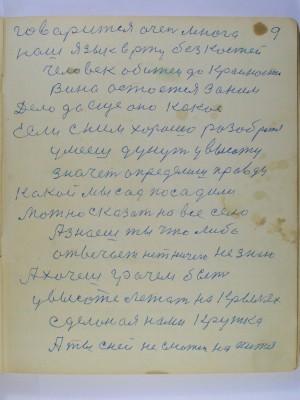 говорится очен много 9
наш язык в рту без костей
человек обижен до крайности
вина остоется за ним
Дело да еще оно какое
Если с ним хорошо разобратся
умееш думут у высоту
значет определиш правду
Какой мы сад посадили
можно сказат на все село
А знаеш ты что либо
отвечает нет ничего не знаю
А хочеш грачем быт
у высоте летат на крылех
зделоная нами кружка
А ты с ней не сможеш на